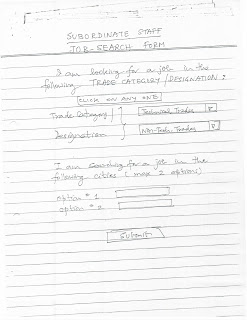 SUBORDINATE STAFF
JOB-SEARCH FORM
I am looking for a job in the
following TRADE CATEGORY / DESIGNATION:
CLICK ON ANY ONE
Trade Category Technical Trades
Designation Non-Tech Trades
I am searching for a job in the
following cities (max 2 options)
option # 1
option # 2
Submit